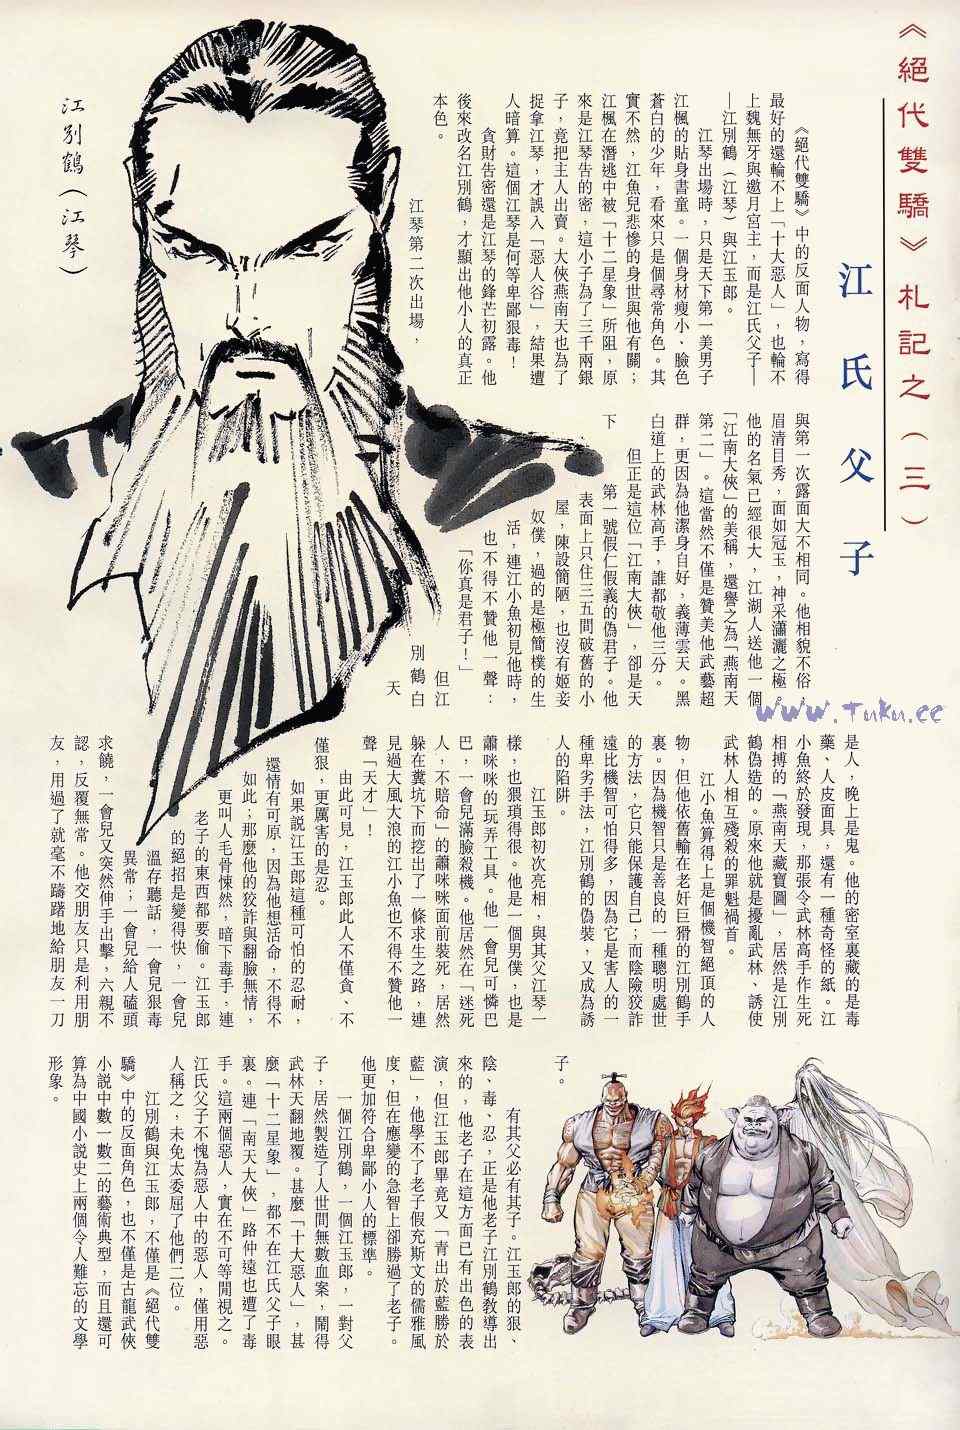 《絕代雙驕》札記之（三）
江氏父子
《絕代雙驕》中的反面人物，寫得
最好的還輪不上「十大惡人」，也輪不
上魏無牙與邀月宮主，而是江氏父子—
—江別鶴（江琴）與江玉郎。
江琴出場時，只是天下第一美男子
江楓的貼身書童。一個身材瘦小、臉色
蒼白的少年，看來只是個尋常角色。其
實不然，江魚兒悲慘的身世與他有關；
江楓在潛逃中被「十二星象」所阻，原
來是江琴告的密，這小子為了三千兩銀
子，竟把主人出賣。大俠燕南天也為了
捉拿江琴，才誤入「惡人谷」，結果遭
人暗算。這個江琴是何等卑鄙狠毒！
貪財告密還是江琴的鋒芒初露。他
後來改名江別鶴，才顯出他小人的真正
本色。
江琴第二次出場，
江別鶴（江琴）
與第一次露面大不相同。他相貌不俗，
眉清目秀，面如冠玉，神采瀟灑之極，
他的名氣已經很大，江湖人送他一個
「江南大俠」的美稱，還譽之為「燕南天
第二」。這當然不僅是贊美他武藝超
群，更因為他潔身自好，義薄雲天。黑
白道上的武林高手，誰都敬他三分。
但正是這位「江南大俠」，卻是天
下第一號假仁假義的偽君子。他
表面上只住三五間破舊的小
屋，陳設簡陋，也沒有姬妾
奴僕，過的是極簡樸的生
活，連江小魚初見他時，
也不得不贊他一聲：
「你真是君子！」
但江
別鶴白
天
是人，晚上是鬼。他的密室裏藏的是毒
藥、人皮面具，還有一種奇怪的紙。江
小魚終於發現，那張令武林高手作生死
相搏的「燕南天藏寶圖」，居然是江別
鶴偽造的。原來他就是擾亂武林、誘使
武林人相互殘殺的罪魁禍首。
江小魚算得上是個機智絕頂的人
物，但他依舊輸在老奸巨猾的江別鶴手
裏。因為機智只是善良的一種聰明處世
的方法，它只能保護自己；而陰險狡詐
遠比機智可怕得多，因為它是害人的一
種卑劣手法，江別鶴的偽裝，又成為誘
人的陷阱。
江玉郎初次亮相，與其父江琴一
樣，也猥瑣得很。他是一個男僕，也是
蕭咪咪的玩弄工具。他一會兒可憐巴
巴，一會兒滿臉殺機。他居然在「迷死
人，不賠命」的蕭咪咪面前裝死，居然
躲在糞坑下而挖出了一條求生之路，連
見過大風大浪的江小魚也不得不贊他一
聲「天才」！
由此可見，江玉郎此人不僅貪、不
僅狠，更厲害的是忍。
如果說江玉郎這種可怕的忍耐，
還情有可原，因為他想活命，不得不
如此；那麼他的狡詐與翻臉無情，
更叫人毛骨悚然，暗下毒手，連
老子的東西都要偷。江玉郎
的絕招是變得快，一會兒
溫存聽話，一會兒狠毒
異常；一會兒給人磕頭
求饒，一會兒又突然伸手出擊，六親不
認，反覆無常。他交朋友只是利用朋
友，用過了就毫不躊躇地給朋友一刀
子。
有其父必有其子。江玉郎的狠、
陰、毒、忍，正是他老子江別鶴教導出
來的，他老子在這方面已有出色的表
演，但江玉郎畢竟又「青出於藍勝於
藍」，他學不了老子假充斯文的儒雅風
度，但在應變的急智上卻勝過了老子。
他更加符合卑鄙小人的標準。
一個江別鶴，一個江玉郎，一對父
子，居然製造了人世間無數血案，鬧得
武林天翻地覆。甚麼「十大惡人」，甚
麼「十二星象」，都不在江氏父子眼
裏。連「南天大俠」路仲遠也遭了毒
手。這兩個惡人，實在不可等閒視之。
江氏父子不愧為惡人中的惡人，僅用惡
人稱之，未免太委屈了他們二位。
江別鶴與江玉郎，不僅是《絕代雙
驕》中的反面角色，也不僅是古龍武俠
小說中數一數二的藝術典型，而且還可
算為中國小說史上兩個令人難忘的文學
形象。
www.Tuku.cc